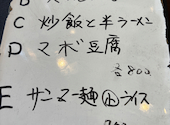 C 炒飯と半ラーメン
D マーボ豆腐
各800
E サンマー麺 小ライス